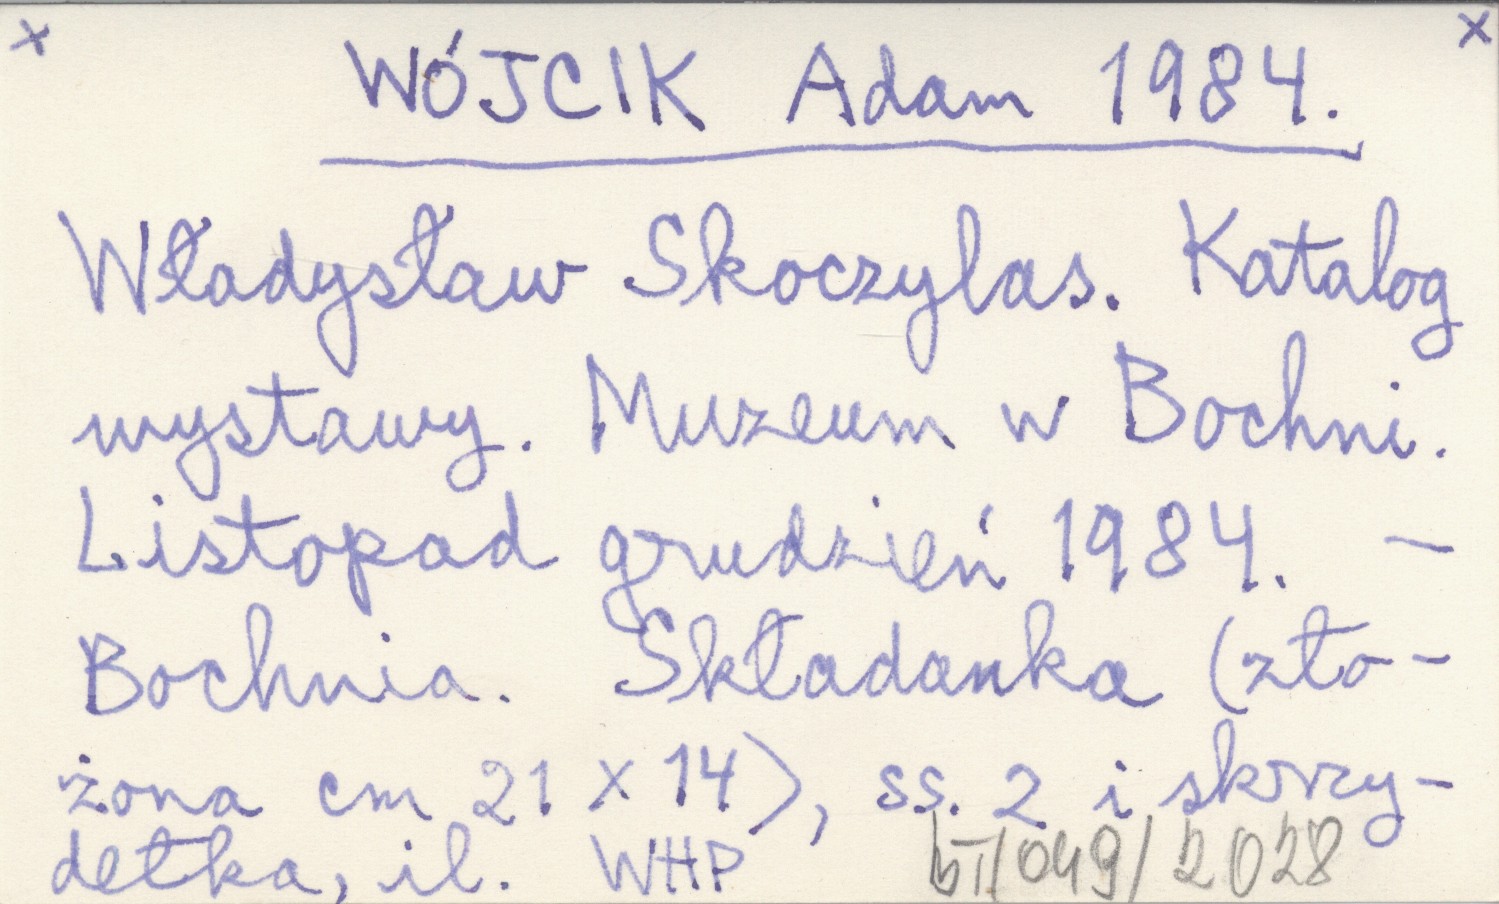 x x
WÓJCIK Adam 1984.
Władysław Skoczylas. Katalog
wystawy. Muzeum w Bochni.
Listopad grudzień 1984. —
Bochnia. Składanka (zło-
żona cm 21 x 14), ss. 2 i skrzy-
dełka, il. WHP
/049/2028